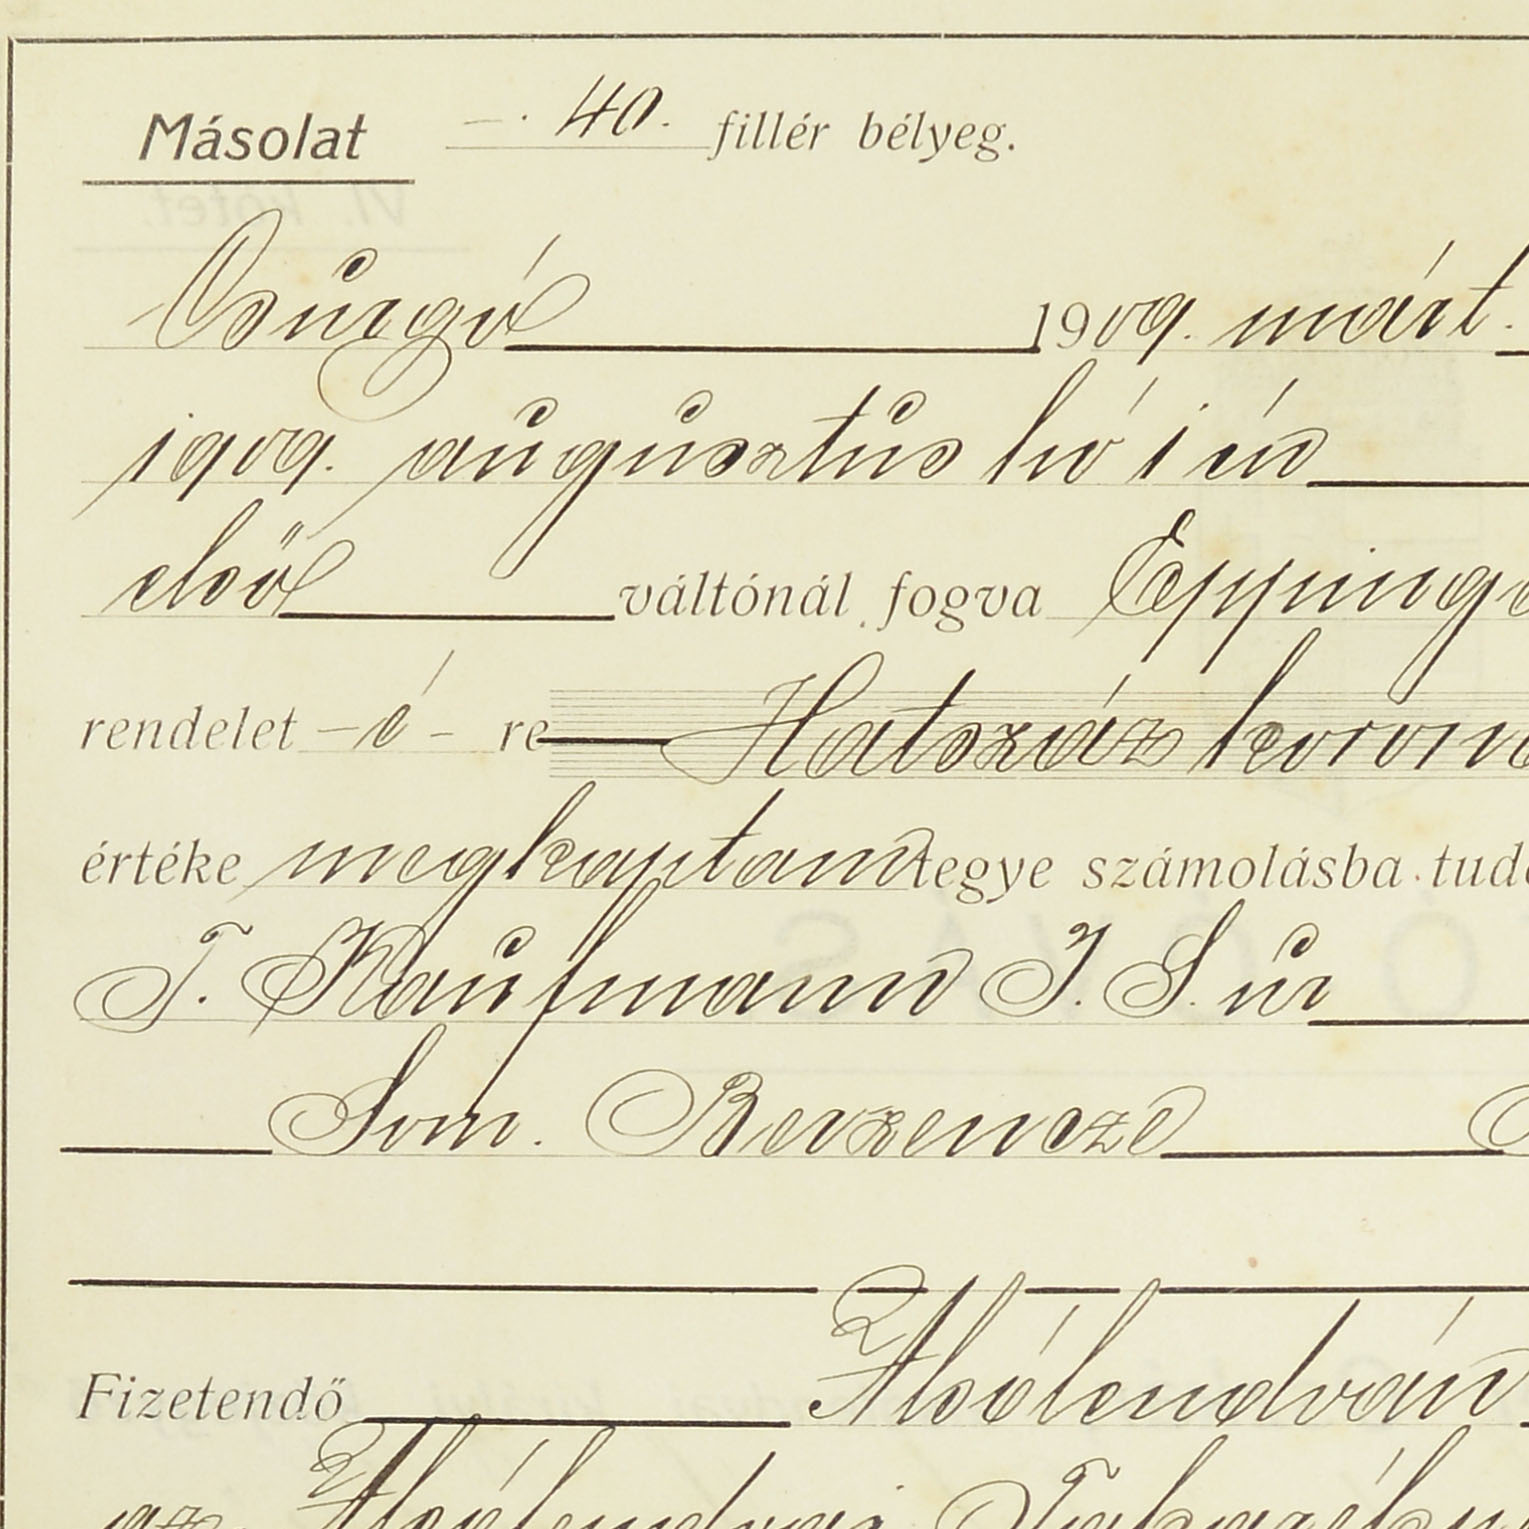 Másolat —· 40. fillér bélyeg.
Csurgó 1909. márt.
1909. augusztus hó 1 én
első váltónál fogva Eppinge
rendelet – é – re Hatszáz koron
értéke megkaptam tegye számolásba tud
T. Kaufmann J. S. úr
Som. Berzencze
Fizetendő Alsólendván
az Alsólendvai Takarék